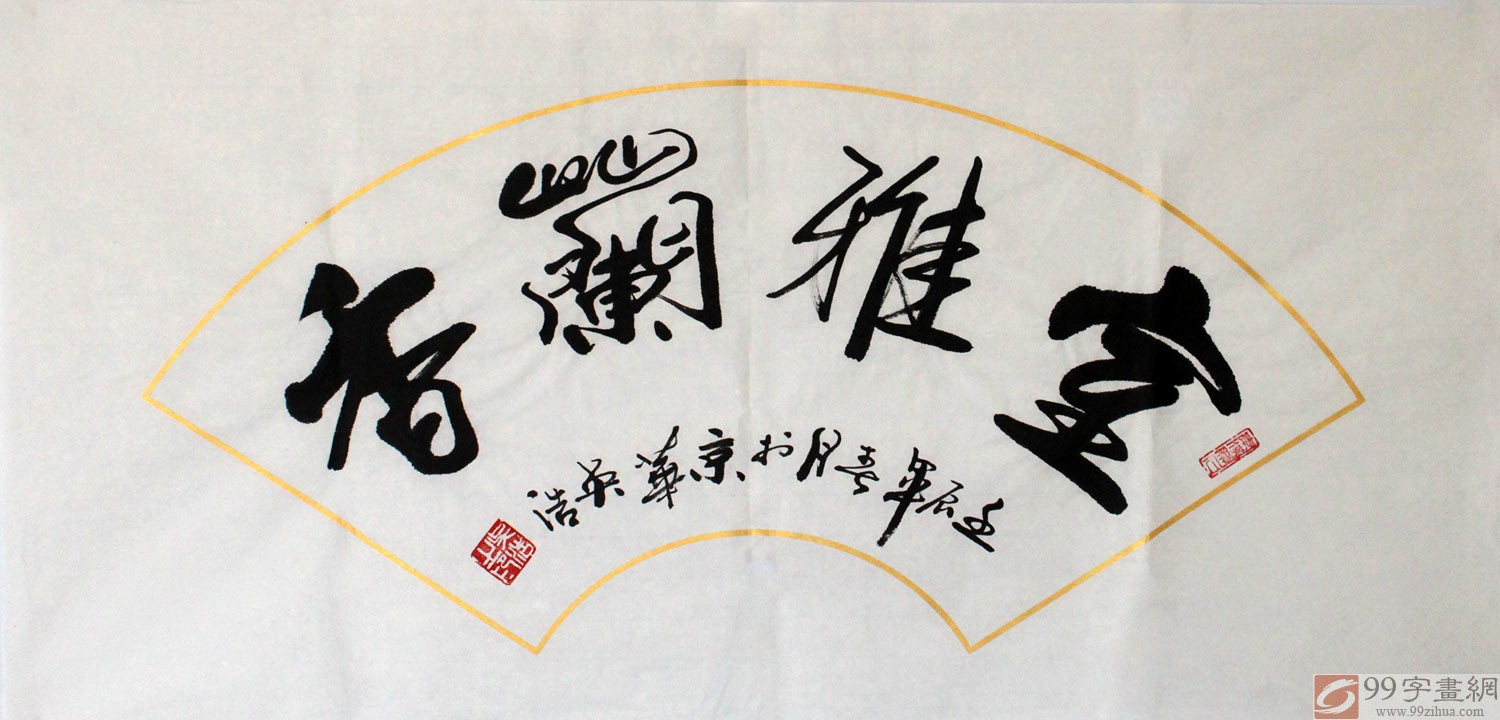 室雅蘭香
壬辰年春月於京華吴浩
99字畫網
www.99zihua.com